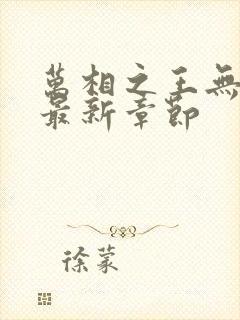 萬相之王無
最新章節
徐蒙